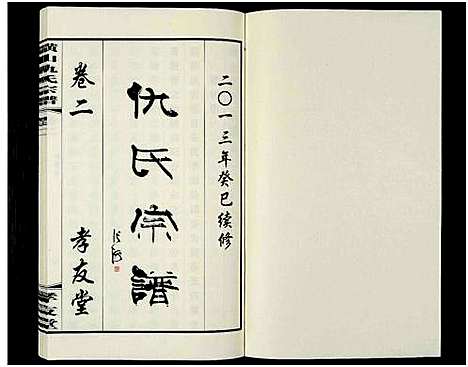 二〇一三年癸巳续修
仇氏宗譜
卷二
孝友堂